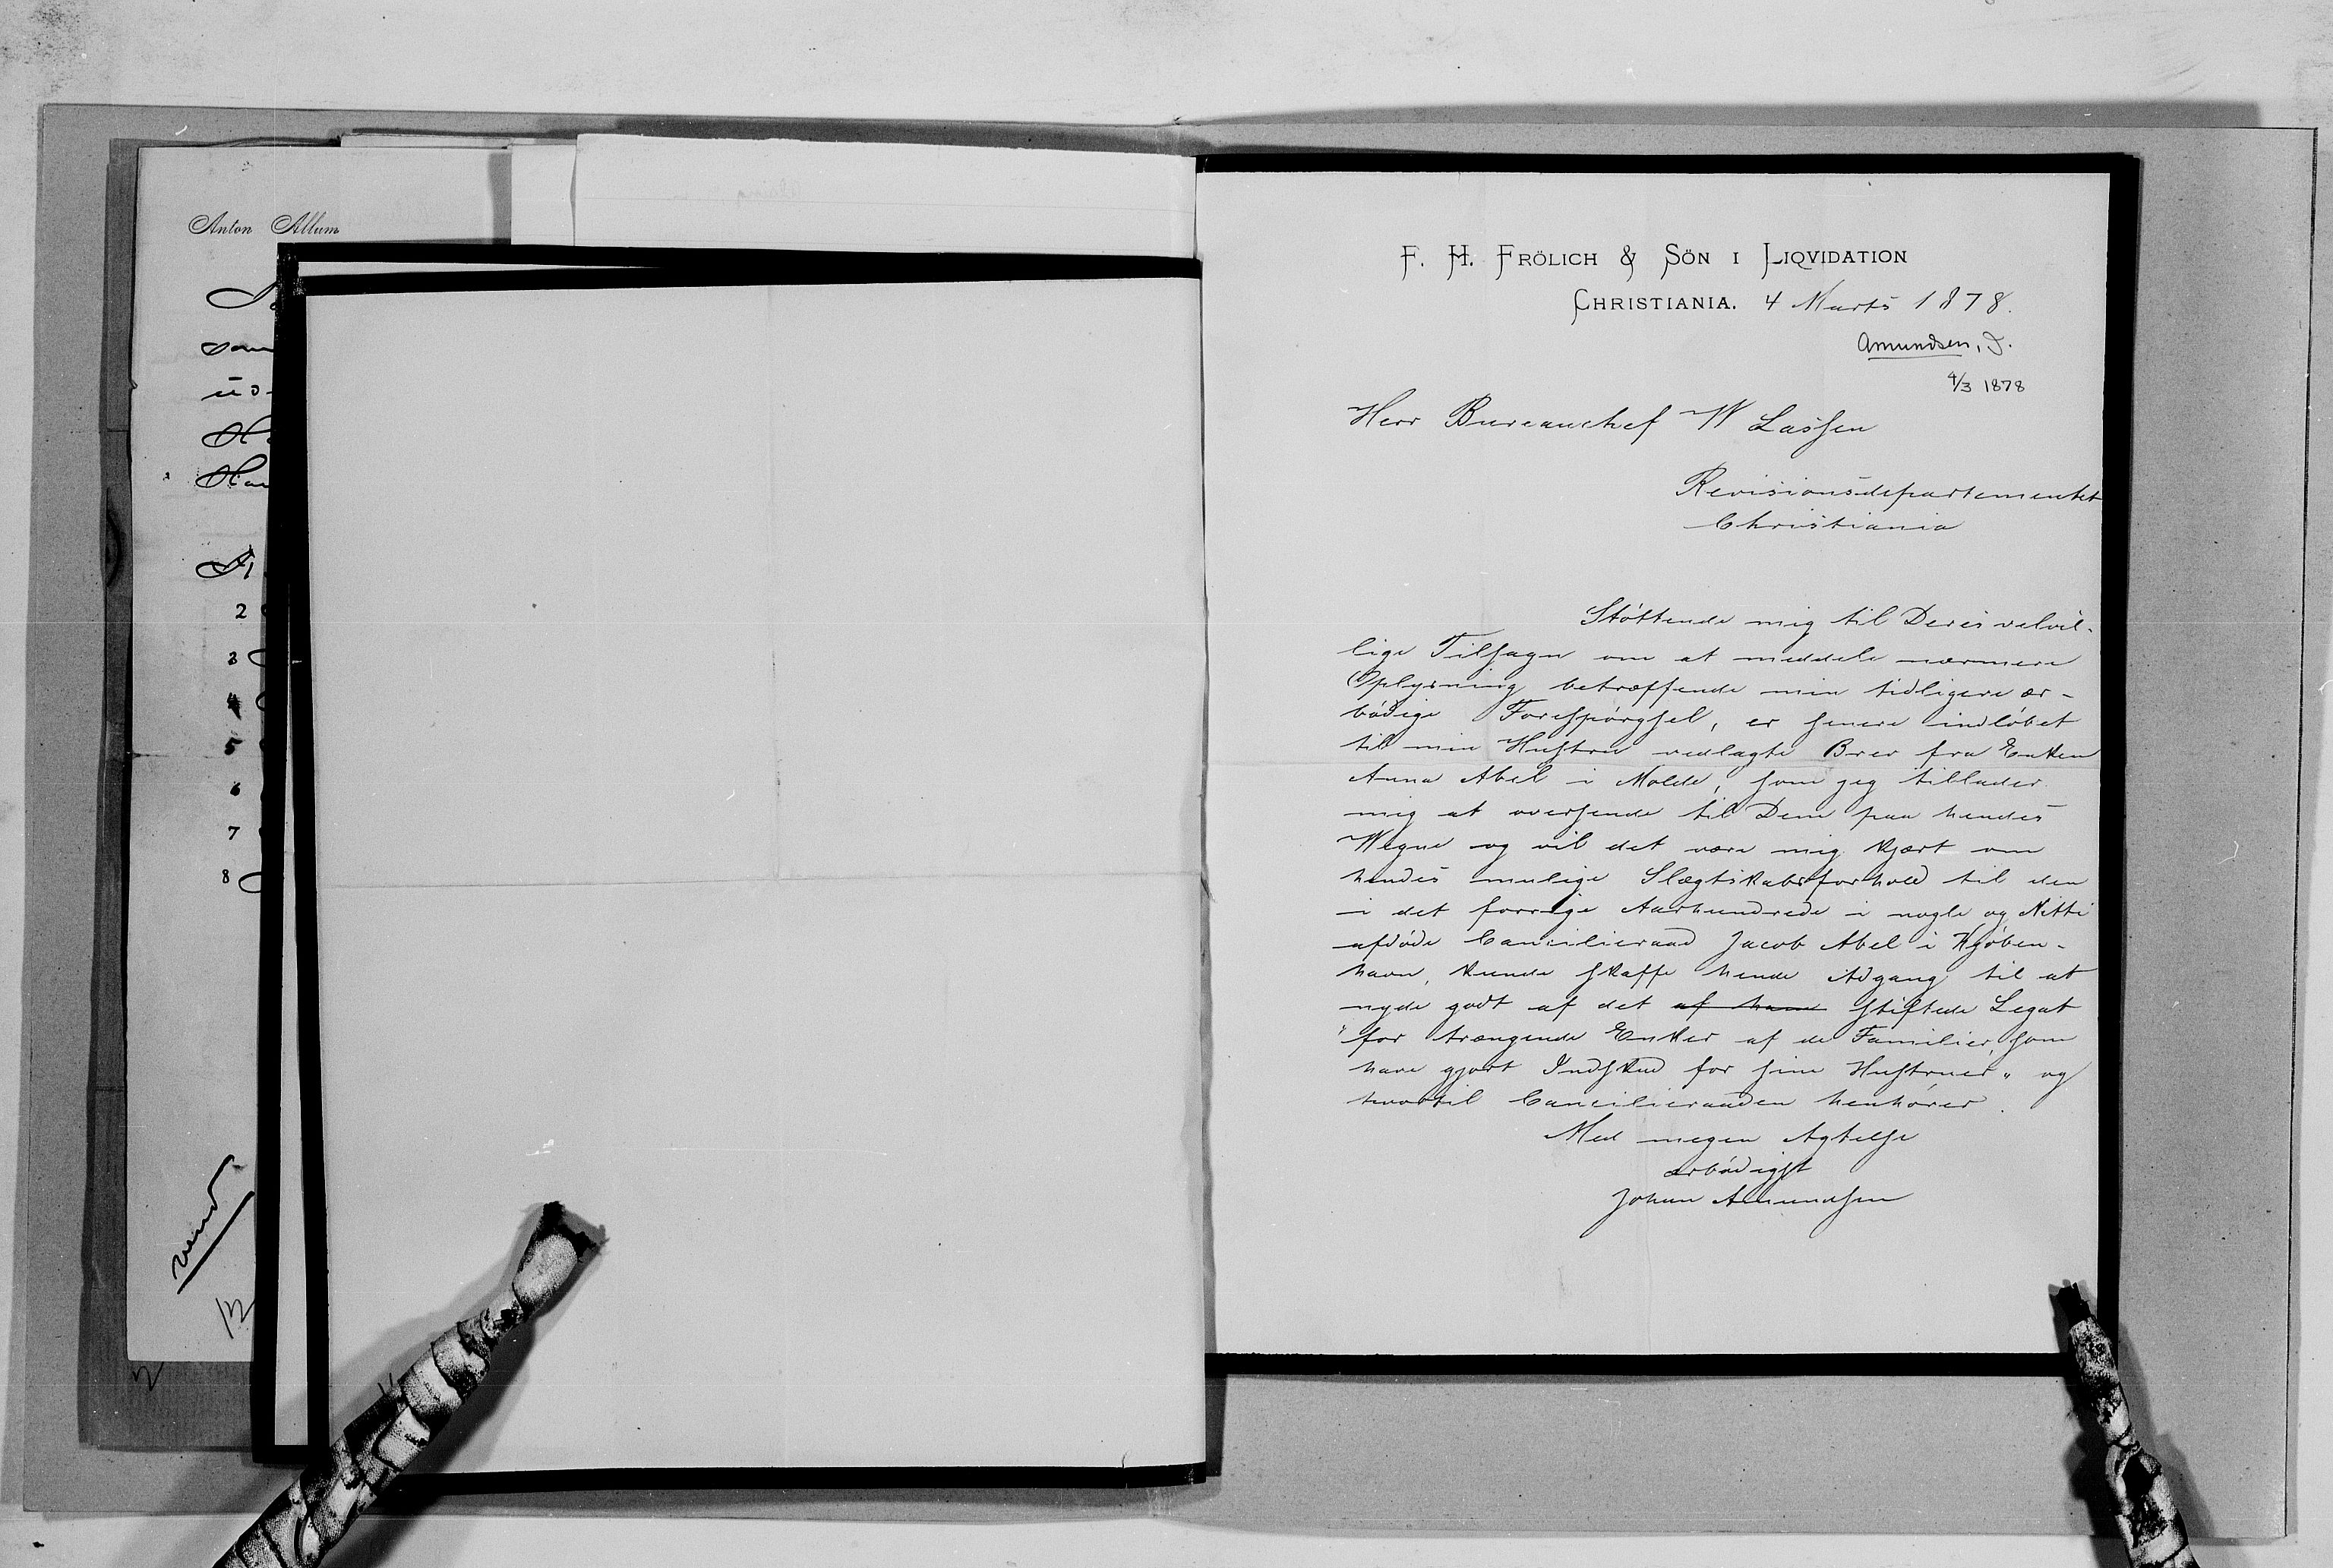 Anton Allum
som
2
3
4
5
6
7
8
vend
F. H. FRÖLICH & SÖN I LIQVIDATION
CHRISTIANIA. 4 Marts 1878.
Amundsen, J.
4/3 1878
Herr Bureauchef W Lassen
Revisionsdepartementet
Christiania
Støttende mig til Deres velvil-
lige Tilsagn om at meddele nærmere
Oplysning betræffende min tidligere ær-
bødige Forespørgsel, er senere indløbet
til min Hustru vedlagte Brev fra Enken
Anna Abel i Molde, som jeg tillader
mig at oversende til Dem paa hendes
Vegne og vil det være mig kjært om
hendes mulige Slægtskabsforhold til den
i det forrige Aarhundrede i nogle og Nitti
afdøde Cancilieraad Jacob Abel i Kjøben-
havn, kunde skaffe hende Adgang til at
nyde godt af det af ham stiftede Legat
"for trængende Enker af de Familier, som
have gjort Indskud for sine Hustruer" og
hvortil Cancilieraaden henhører.
Med megen Agtelse
ærbødigst
Johan Amundsen